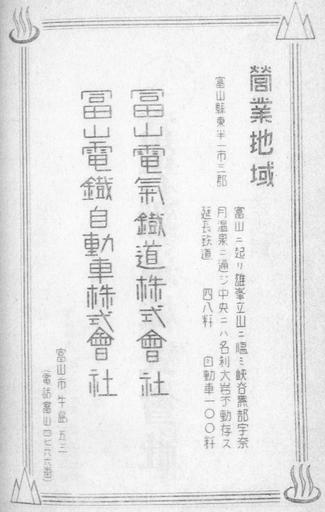 営業地域
富山縣東半一市三郡
富山ニ起リ雄峯立山ニ臨ミ峡谷黒部宇奈
月温泉ニ通ジ中央ニハ名刹大岩不動存ス
延長鉄道 四八粁 自動車一〇〇粁
富山電氣鐵道株式會社
富山電鐵自動車株式會社
富山市牛島五三
(電話富山四七六六番)